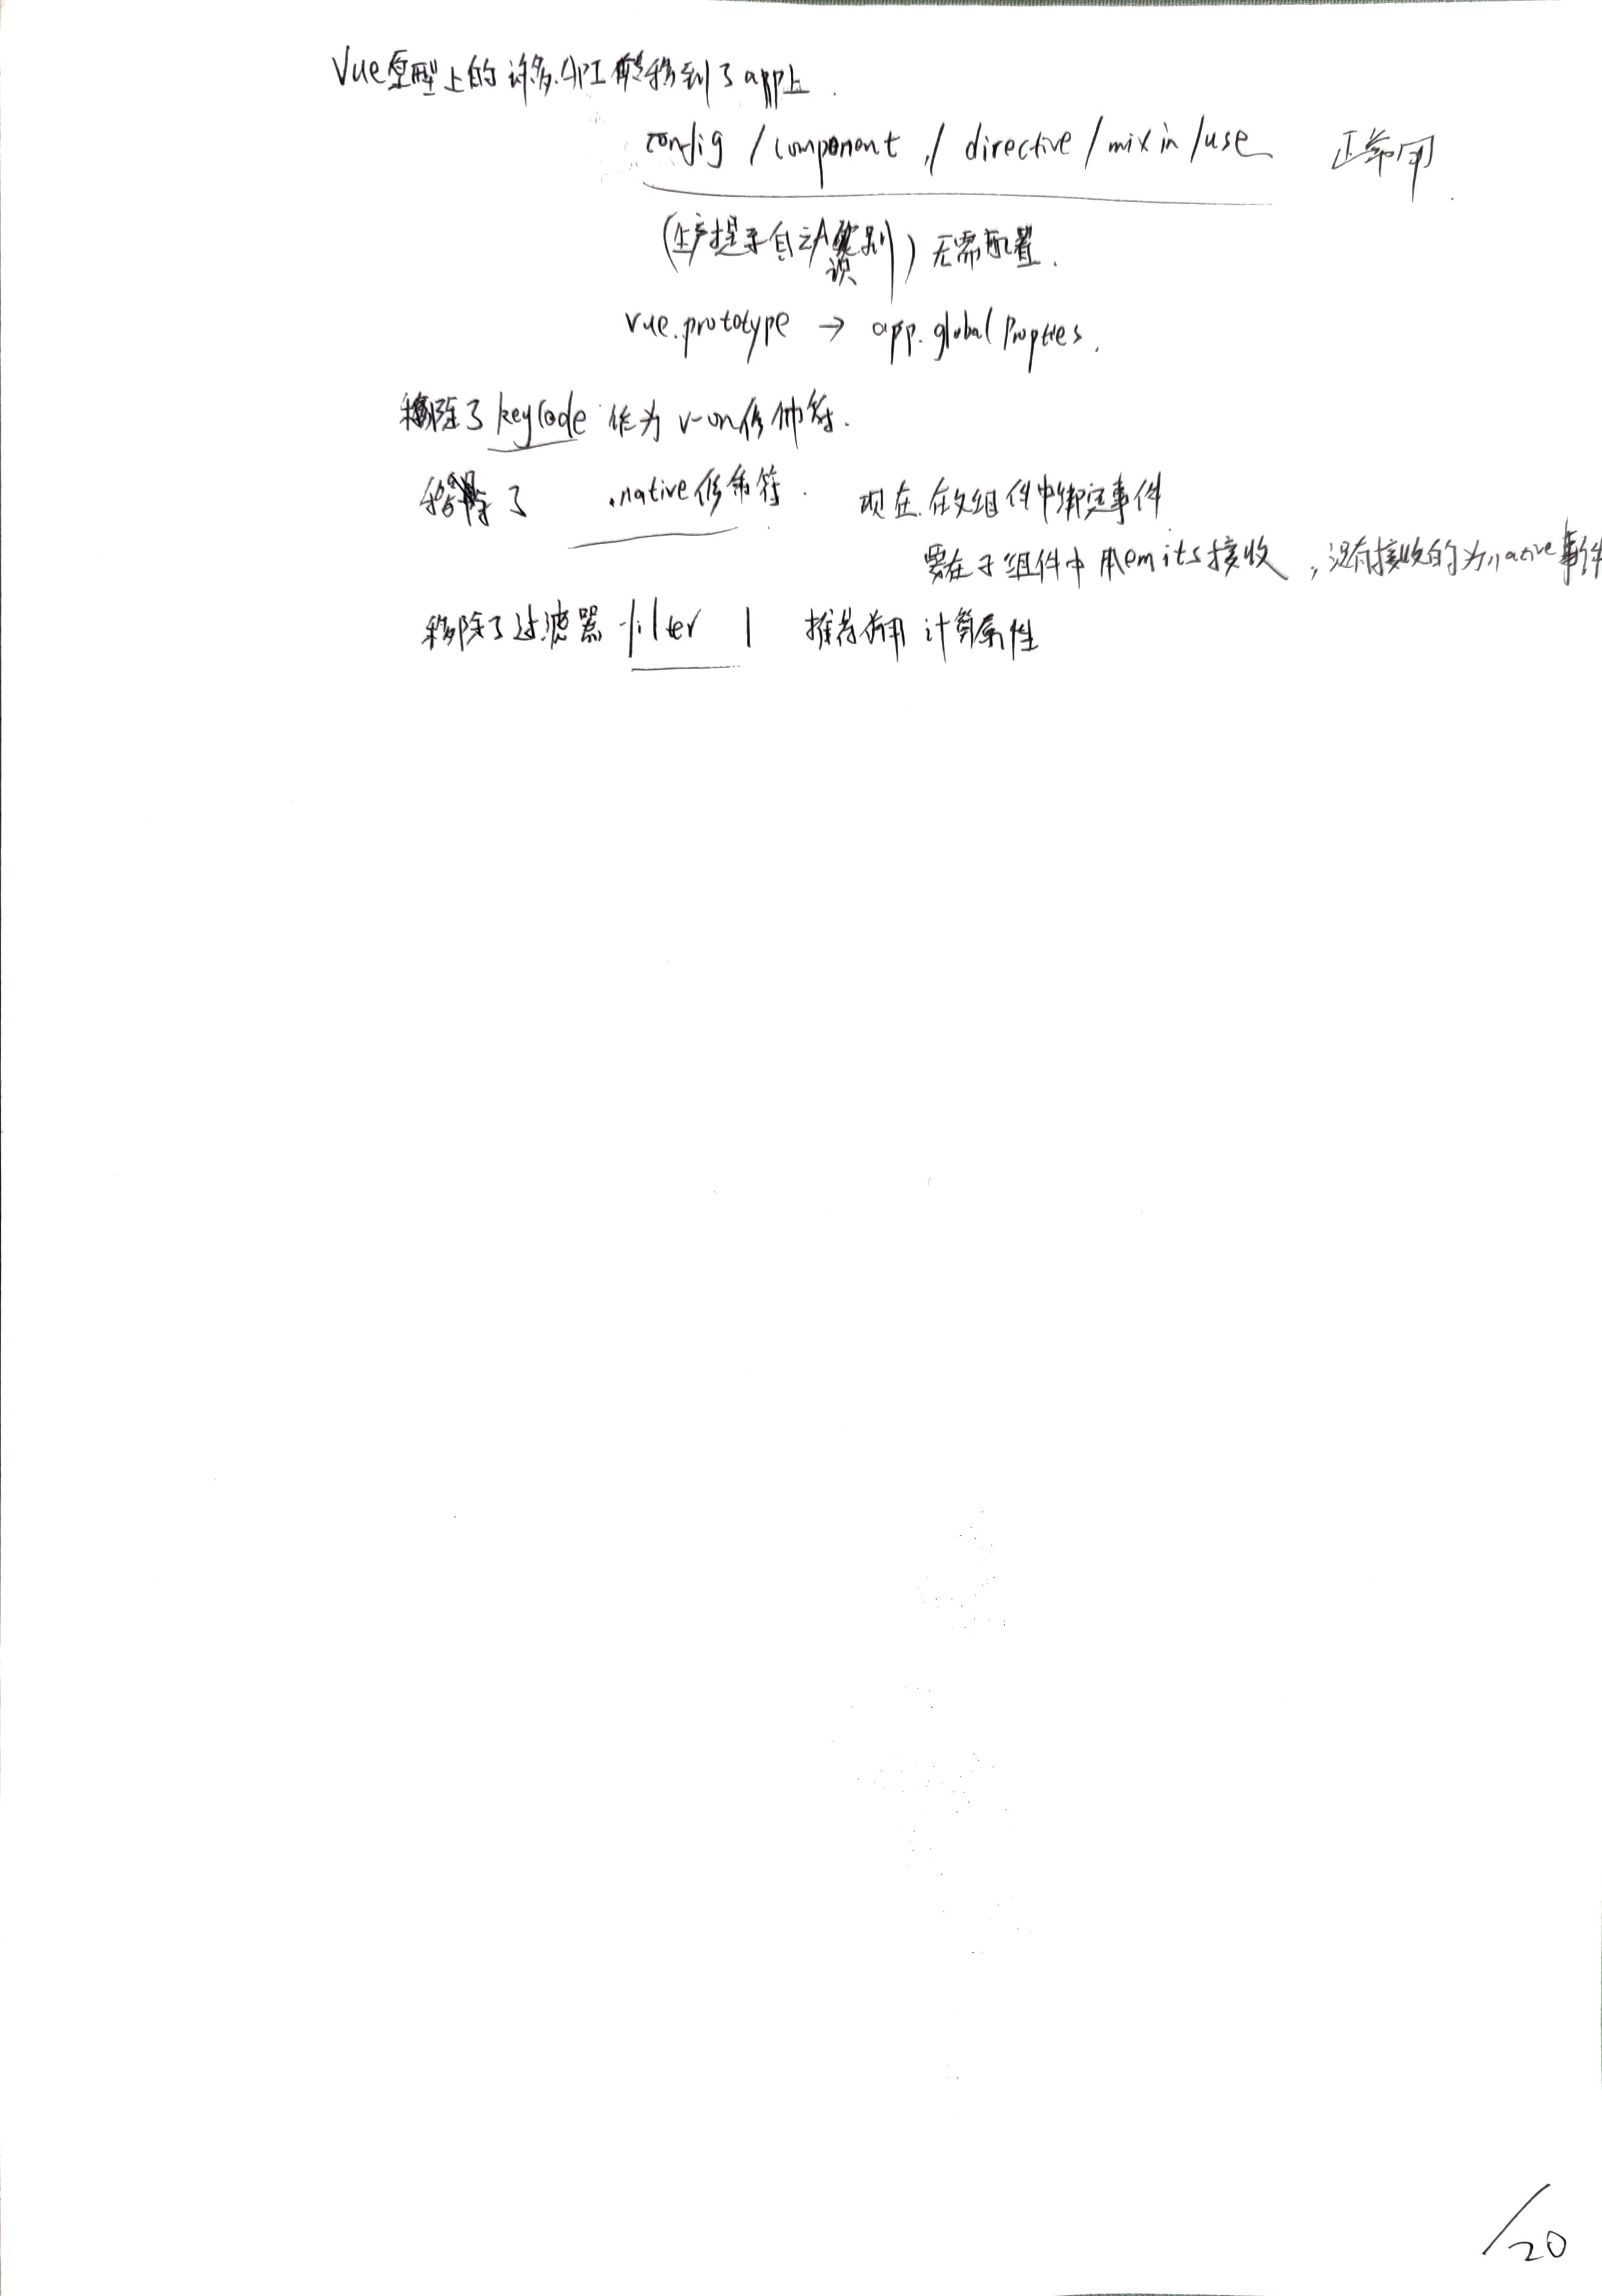 Vue原型上的许多API转移到了app上.
config / component / directive / mixin / use 正常用.
(生产提示自动识别) 无需配置.
vue.prototype → app.global Propties.
移除了 keyCode 作为 v-on修饰符.
移除了 .native修饰符. 现在在父组件中绑定事件
要在子组件中用emits接收,没有接收的为native事件
移除了过滤器 filter | 推荐使用 计算属性
/20